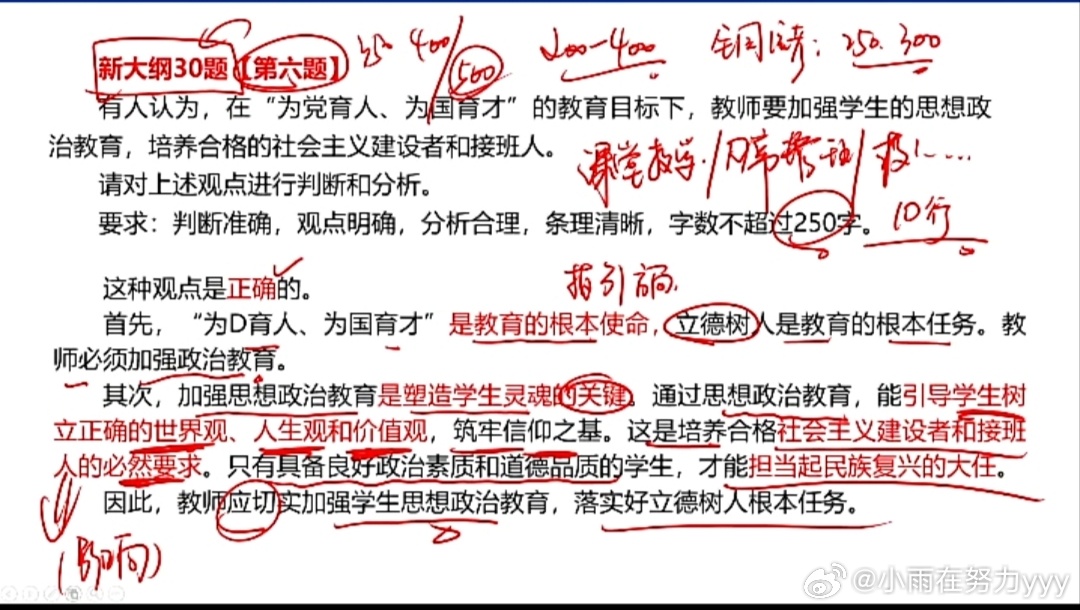 新大纲30题【第六题】 250 400/500 200-400 全国统考：250. 300
有人认为，在“为党育人、为国育才”的教育目标下，教师要加强学生的思想政
治教育，培养合格的社会主义建设者和接班人。
课堂教学/
请对上述观点进行判断和分析。
要求：判断准确，观点明确，分析合理，条理清晰，字数不超过250字。 10行
这种观点是正确的。
首先，“为D育人、为国育才”是教育的根本使命，立德树人是教育的根本任务。教
师必须加强政治教育。
其次，加强思想政治教育是塑造学生灵魂的关键。通过思想政治教育，能引导学生树
立正确的世界观、人生观和价值观，筑牢信仰之基。这是培养合格社会主义建设者和接班
人的必然要求。只有具备良好政治素质和道德品质的学生，才能担当起民族复兴的大任。
因此，教师应切实加强学生思想政治教育，落实好立德树人根本任务。
(影响)
@小雨在努力yyy